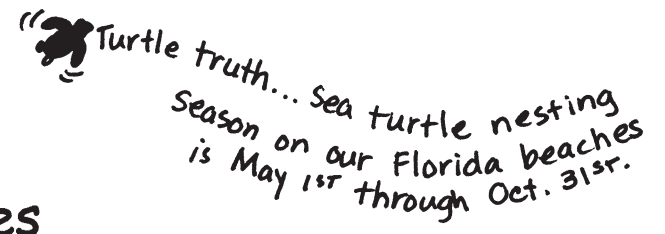 Turtle truth... Sea turtle nesting
season on our Florida beaches
is May 1ST through Oct. 31ST.
es